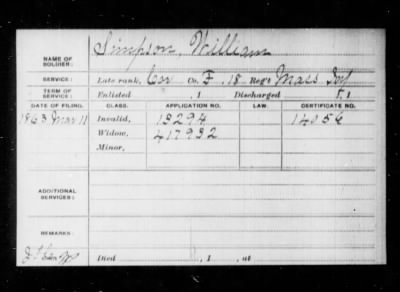 NAME OF SOLDIER: Simpson, William
SERVICE: Late rank, Cor Co. F, 18 Reg't Mass Inf
TERM OF SERVICE: Enlisted , 1 Discharged , 1
DATE OF FILING. CLASS. APPLICATION NO. LAW. CERTIFICATE NO.
1863 Mar 11 Invalid, 18294 14056
Widow, 417932
Minor,
ADDITIONAL SERVICES:
REMARKS:
Died , 1 , at